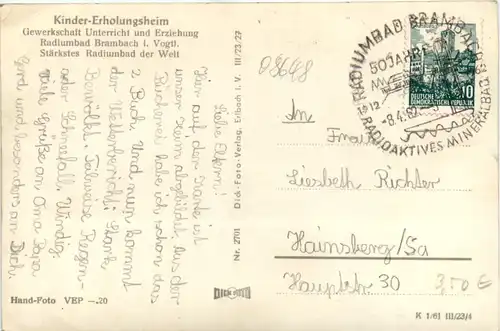 Kinder-Erholungsheim
Gewerkschaft Unterricht und Erziehung
Radiumbad Brambach i. Vogtl.
Stärkstes Radiumbad der Welt
Liebe Eltern!
Hier auf der Karte ist
unser Heim abgebildet. Aus der
Bücherei habe ich schon das
2. Buch. Und nun kommt
der Wetterbericht: Stark
Bewölkt. Teilweise Regen-
oder Schneefall. Windig.
Viele Grüße an Oma Papa
und besonders an Dich.
Hand-Foto VEP -.20
Dick-Foto-Verlag, Erlbach i. V. III/23/29
Nr. 2701
DICK FOTO
RADIUMBAD BRAMBACH
50 JAHRE
12
-8.4.62
RADIOAKTIVES MINERALBAD
DEUTSCHE
DEMOKRATISCHE REPUBLIK
10
An
Frau
Liesbeth Richter
Hainsberg/Sa
Hauptstr 30
3,50 €
K 1/61 III/23/4